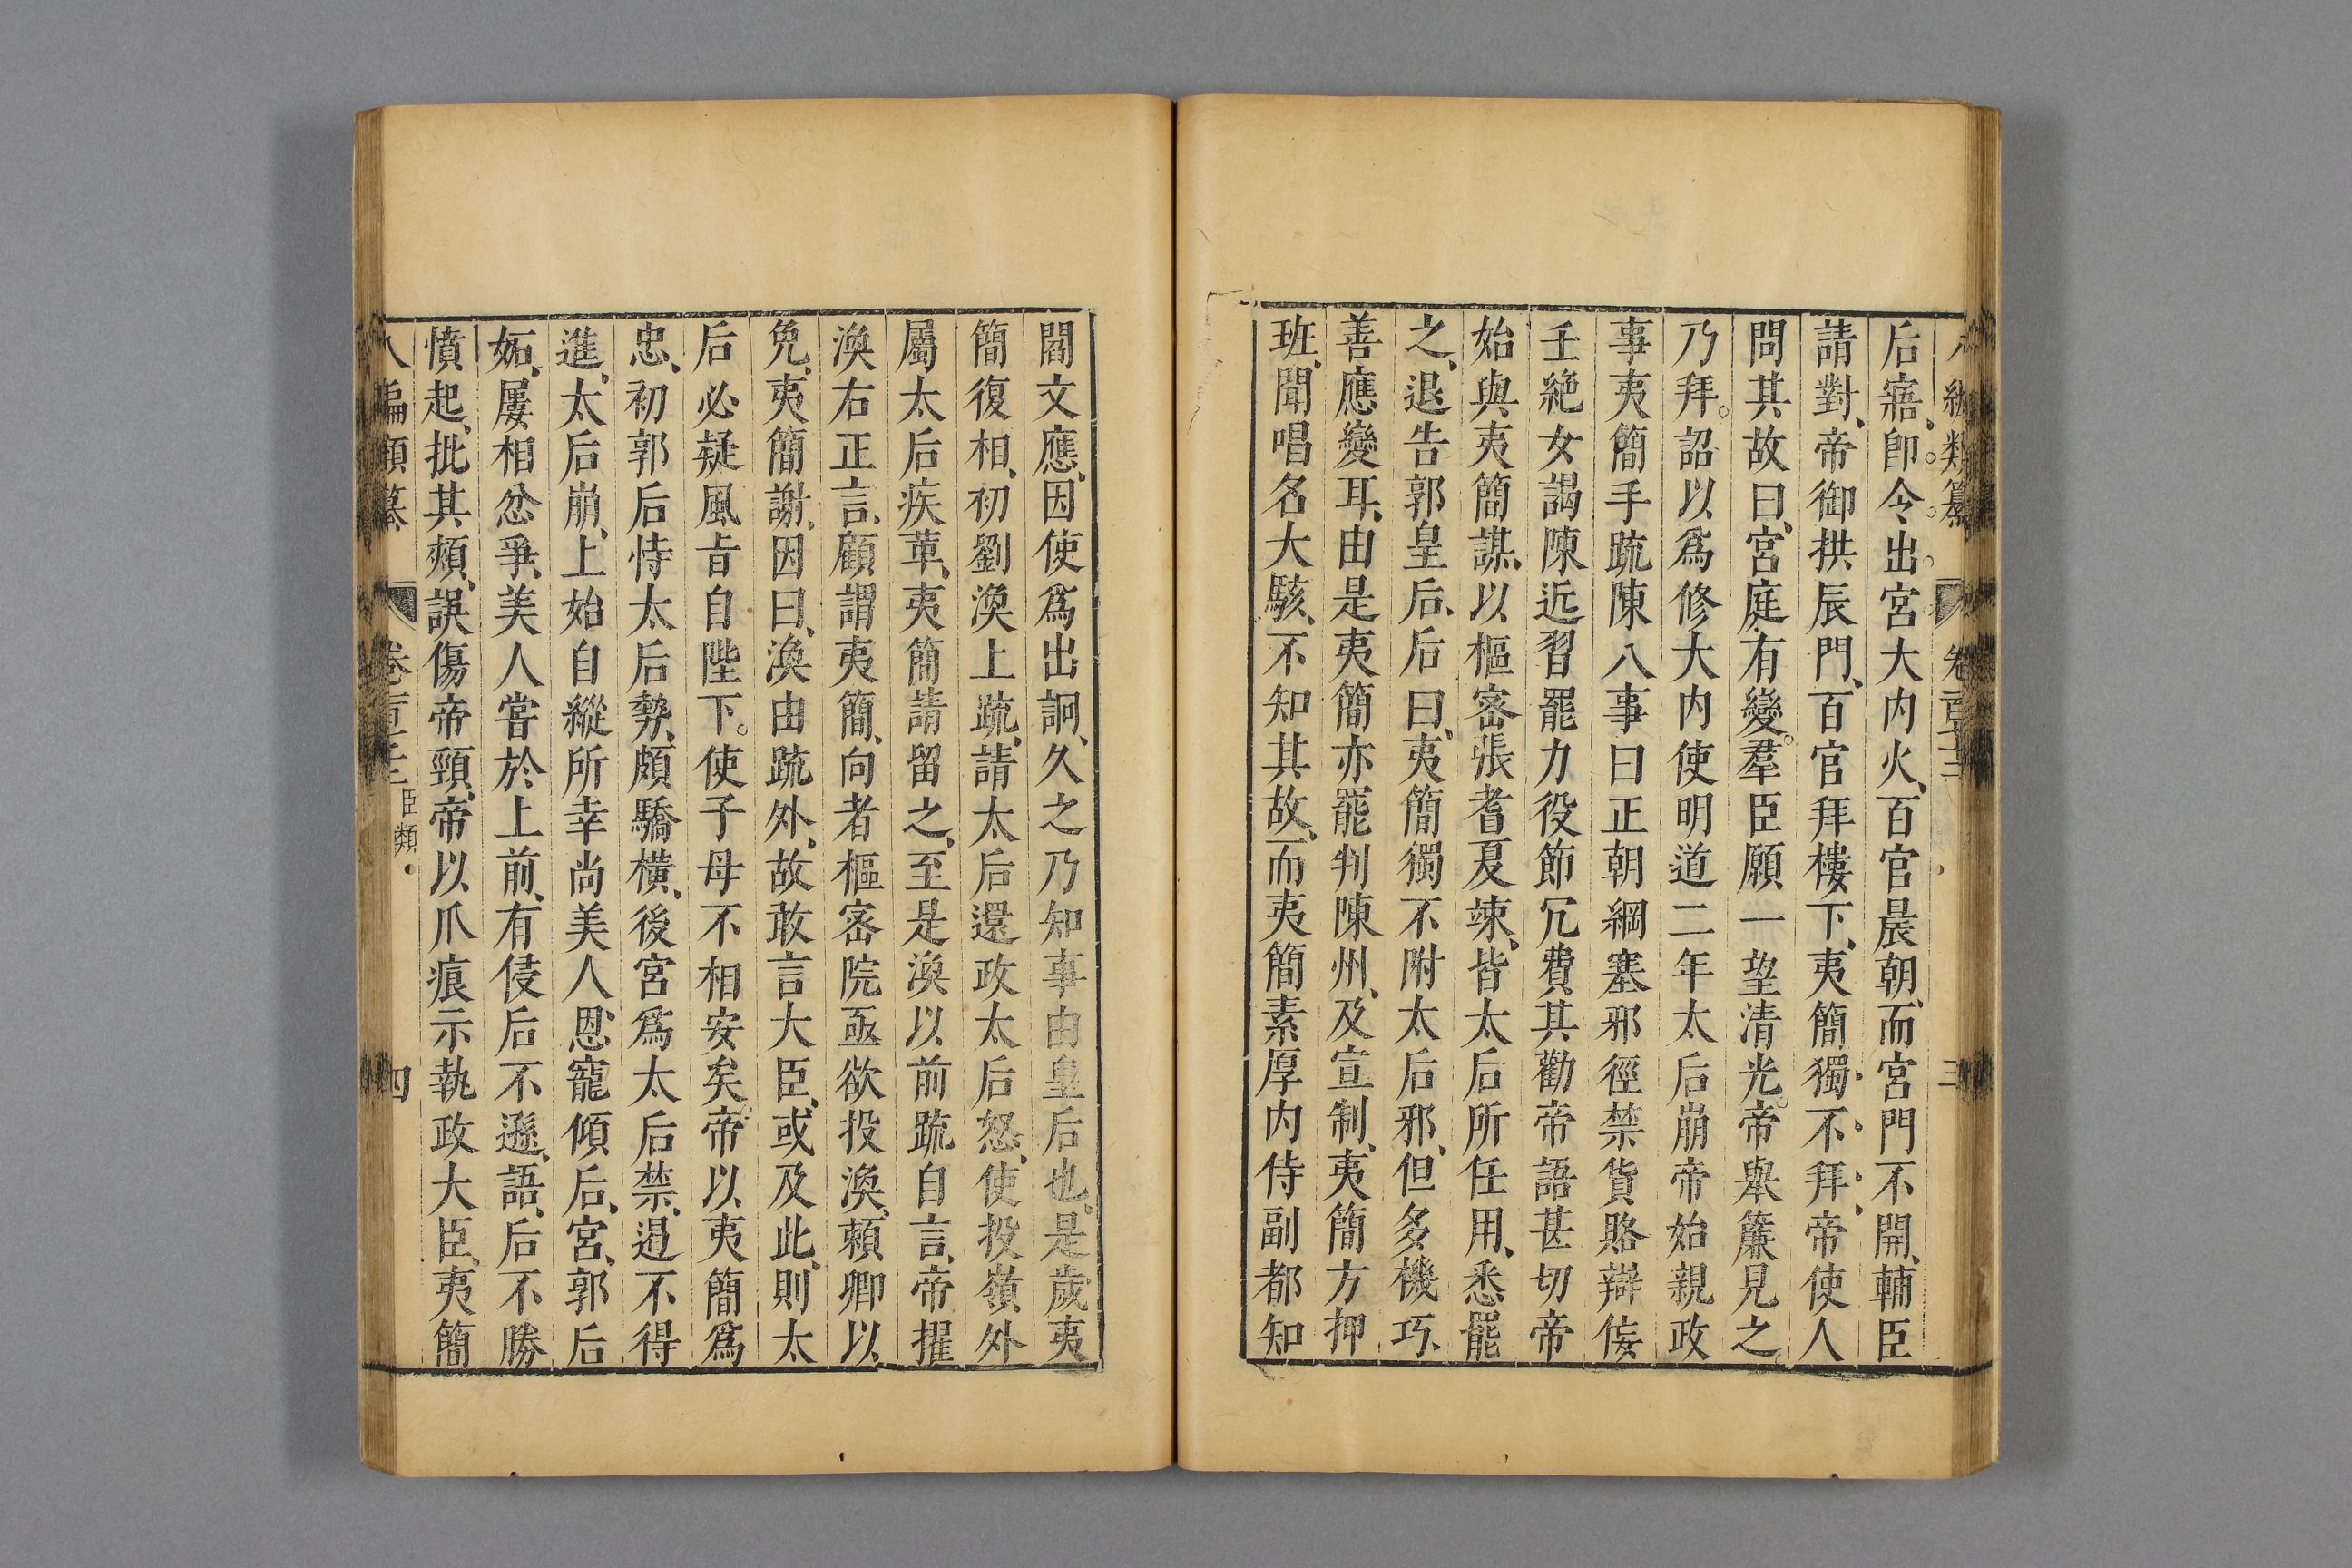 八編類纂 卷百十三 三
后寤、即令出宮大内火、百官晨朝、而宮門不開、輔臣
請對、帝御拱辰門、百官拜樓下、夷簡獨不拜、帝使人
問其故曰、宮庭有變。羣臣願一望清光。帝舉簾見之
乃拜。詔以爲修大内使明道二年太后崩帝始親政
事夷簡手疏陳八事曰正朝綱塞邪徑禁貨賂辯侫
壬絶女謁陳近習罷力役節冗費其勸帝語甚切帝
始與夷簡謀、以樞密張耆夏竦、皆太后所任用、悉罷
之、退告郭皇后、后曰、夷簡獨不附太后邪、但多機巧、
善應變耳、由是夷簡亦罷判陳州、及宣制、夷簡方押
班、聞唱名大駭、不知其故、而夷簡素厚内侍副都知
閻文應、因使爲出詗、久之乃知事由皇后也。是歲夷
簡復相、初劉渙上疏、請太后還政太后怒、使投嶺外
屬太后疾革、夷簡請留之、至是渙以前疏自言、帝擢
渙右正言、顧謂夷簡、向者樞密院亟欲投渙、頼卿以
免、夷簡謝、因曰、渙由疏外、故敢言大臣、或及此、則太
后必疑風旨自陛下。使子母不相安矣。帝以夷簡爲
忠、初郭后恃太后勢、頗驕橫、後宮爲太后禁、遏不得
進、太后崩、上始自縱所幸尚美人、恩寵傾后、宮、郭后
妬、屢相忿爭、美人嘗於上前、有侵后不遜、語、后不勝
憤起、批其頰、誤傷帝頸、帝以爪痕示執政大臣、夷簡
八編類纂 卷百十三 臣類 四